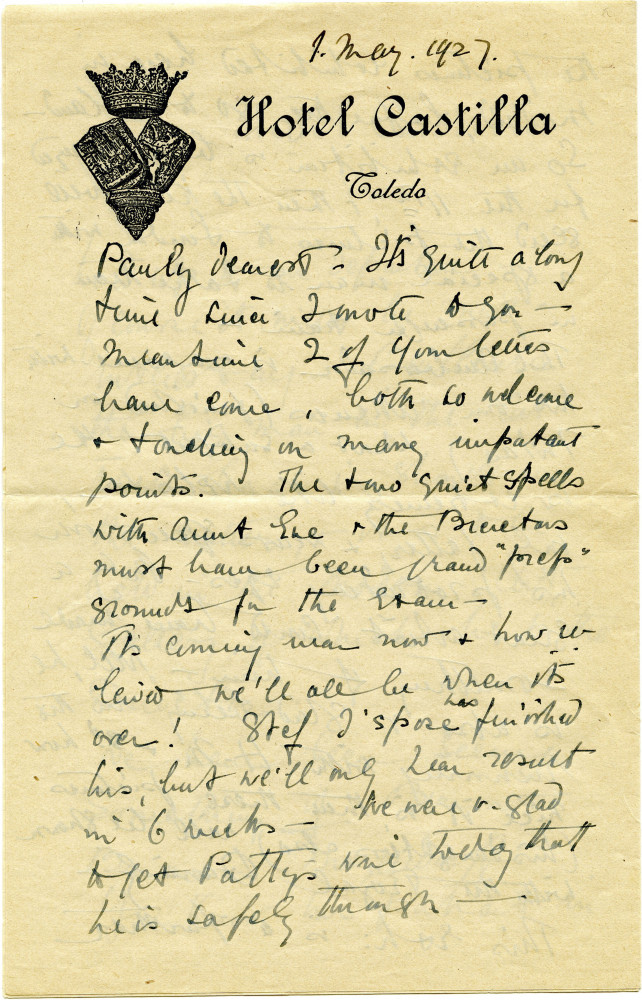 1. May. 1927.
Hotel Castilla
Toledo
Pauly dearest - It's quite a long
time since I wrote to you -
Meantime 2 of your letters
have come, both so welcome
& touching on many important
points. The two quiet spells
with Aunt Eve & the
must have been grand "prep"
grounds for the Exam -
Its coming near now & how re-
lieved we'll all be when its
over! Stef I 'spose has finished
his, but we'll only hear result
in 6 weeks - We were v. glad
to get Patty's wire today that
he is safely through -